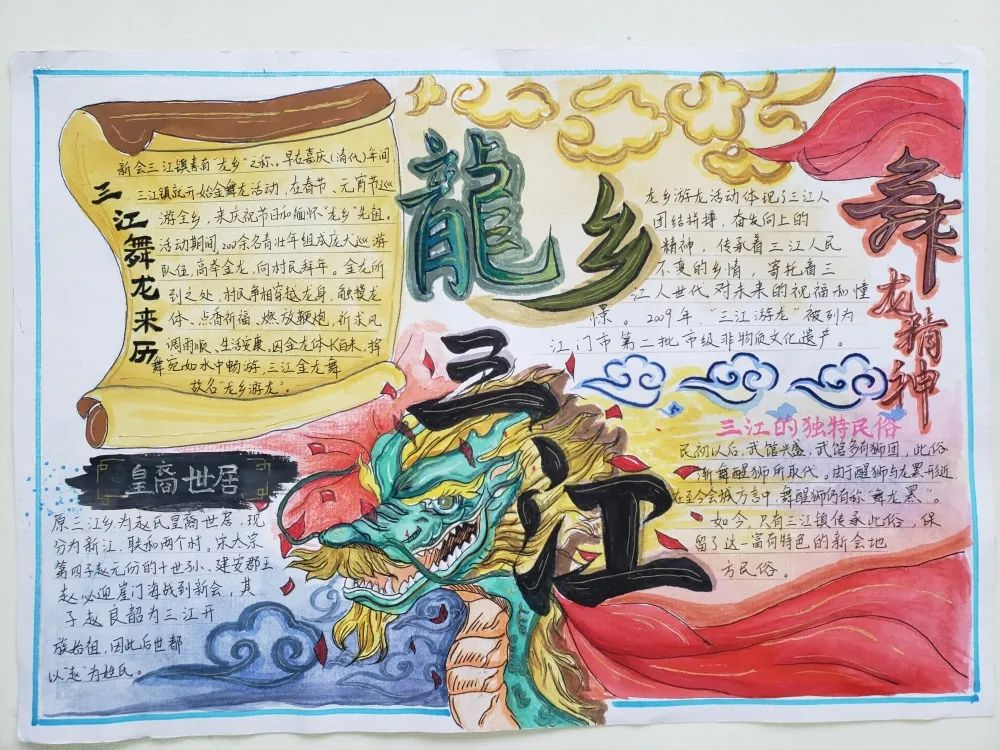 龍乡
三江
三江舞龙来历
新会三江镇素有“龙乡”之称。早在嘉庆(清代)年间,
三江镇就开始金舞龙活动,在春节、元宵节巡
游全乡,来庆祝节日和缅怀“龙乡”先祖。
活动期间,200余名青壮年组成庞大巡游
队伍,高举金龙,向村民拜年。金龙所
到之处,村民争相穿越龙身,触摸龙
体、点香祈福、燃放鞭炮,祈求风
调雨顺、生活安康,因金龙体长百米,挥
舞宛如水中畅游,三江金龙舞
故名“龙乡游龙”。
皇裔世居
原三江乡为赵氏皇裔世居,现
分为新江、联和两个村。宋太宗
第四子赵元份的十世孙、建安郡王
赵必迎崖门海战到新会,其
子赵良韶为三江开
族始祖,因此后世都
以“赵”为姓氏。
舞龙精神
龙乡游龙活动体现了三江人
团结拼搏,奋发向上的
精神,传承着三江人民
不变的乡情,寄托着三
江人世代对未来的祝福和憧
憬。2009年,“三江游龙”被列为
江门市第二批市级非物质文化遗产。
三江的独特民俗
民初以后,武馆兴盛,武馆多有狮团,此俗
渐舞醒狮所取代。由于醒狮与龙黑形近,
在至今会城方言中,舞醒狮仍有称“舞龙黑”。
如今,只有三江镇传承此俗,保
留了这一富有特色的新会地
方民俗。